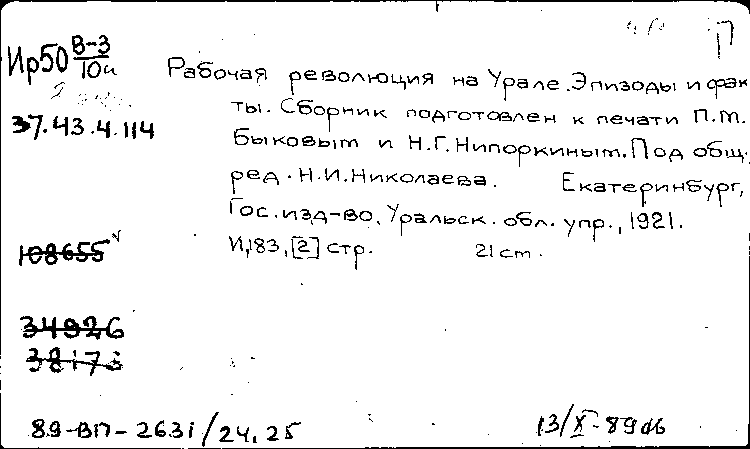 П
Ир50 В-3/10и
Рабочая революция на Урале. Эпизоды и фак
ты. Сборник подготовлен к печати П.М.
37.43.4.114
Быковым и Н.Г.Нипоркиным. Под общ.
ред. Н.И.Николаева. Екатеринбург,
Гос. изд-во, Уральск. обл. упр., 1921.
108655
И,183,[2] стр. 21 cm.
34926
38173
89-ВП-2631/24,25
13/X-89